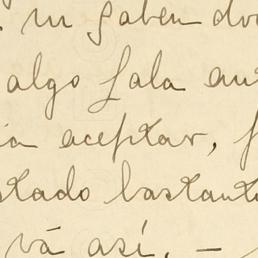 . ni saben do
algo fala an
ia aceptar,
stado bastant
vá así. –